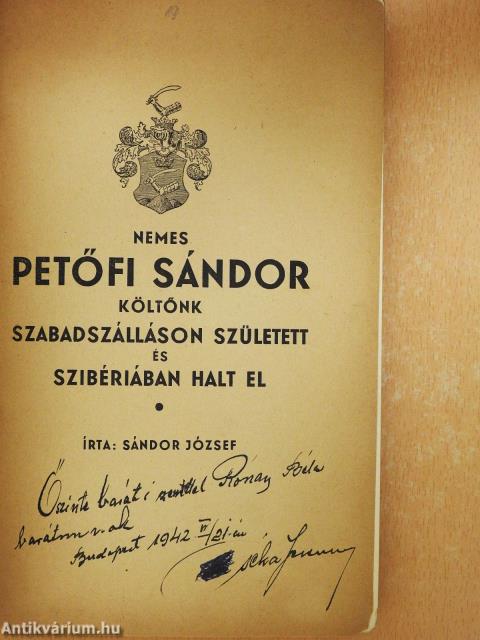 NEMES
PETŐFI SÁNDOR
KÖLTŐNK
SZABADSZÁLLÁSON SZÜLETETT
ÉS
SZIBÉRIÁBAN HALT EL
ÍRTA: SÁNDOR JÓZSEF
Őszinte baráti Rónay Béla
barátomnak
Budapest 1942 VI/21-én
Antikvárium.hu